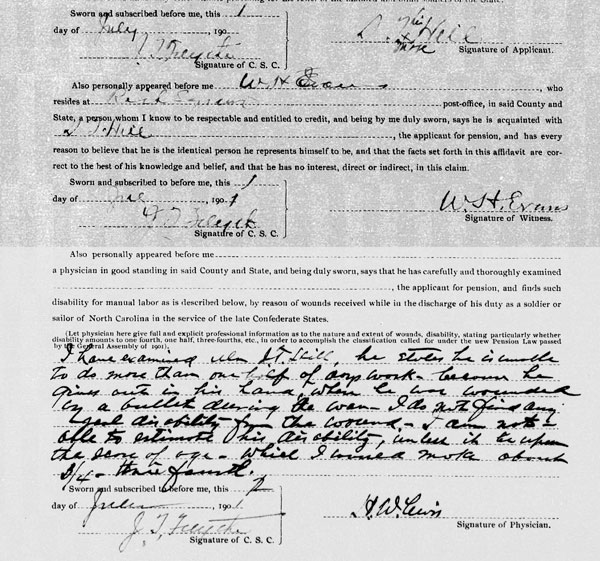 Sworn and subscribed before me, this 1
day of July 190
his
Hill
mark
Signature of Applicant.
Signature of C. S. C.
Also personally appeared before me W. H. Evans, who
resides at post-office, in said County and
State, a person whom I know to be respectable and entitled to credit, and being by me duly sworn, says he is acquainted with
Hill, the applicant for pension, and has every
reason to believe that he is the identical person he represents himself to be, and that the facts set forth in this affidavit are cor-
rect to the best of his knowledge and belief, and that he has no interest, direct or indirect, in this claim.
Sworn and subscribed to before me, this 1
day of 1901
W. H. Evans
Signature of Witness.
Signature of C. S. C.
Also personally appeared before me
a physician in good standing in said County and State, and being duly sworn, says that he has carefully and thoroughly examined
, the applicant for pension, and finds such
disability for manual labor as is described below, by reason of wounds received while in the discharge of his duty as a soldier or
sailor of North Carolina in the service of the late Confederate States.
(Let physician here give full and explicit professional information as to the nature and extent of wounds, disability, stating particularly whether
disability amounts to one fourth, one half, three-fourths, etc., in order to accomplish the classification called for under the new Pension Law passed
by the General Assembly of 1901).
I have examined Hill, he states he is unable
to do more than one half of any work because he
gives out in his hand, when he was wounded
by a bullet during the war - I do not find any
disability from the wound - I am not
able to estimate his disability, unless it be upon
the score of age - which I would make about
3/4 - three fourth.
Sworn and subscribed to before me, this
day of July 190
H. W. Lewis
Signature of Physician.
J. T.
Signature of C. S. C.